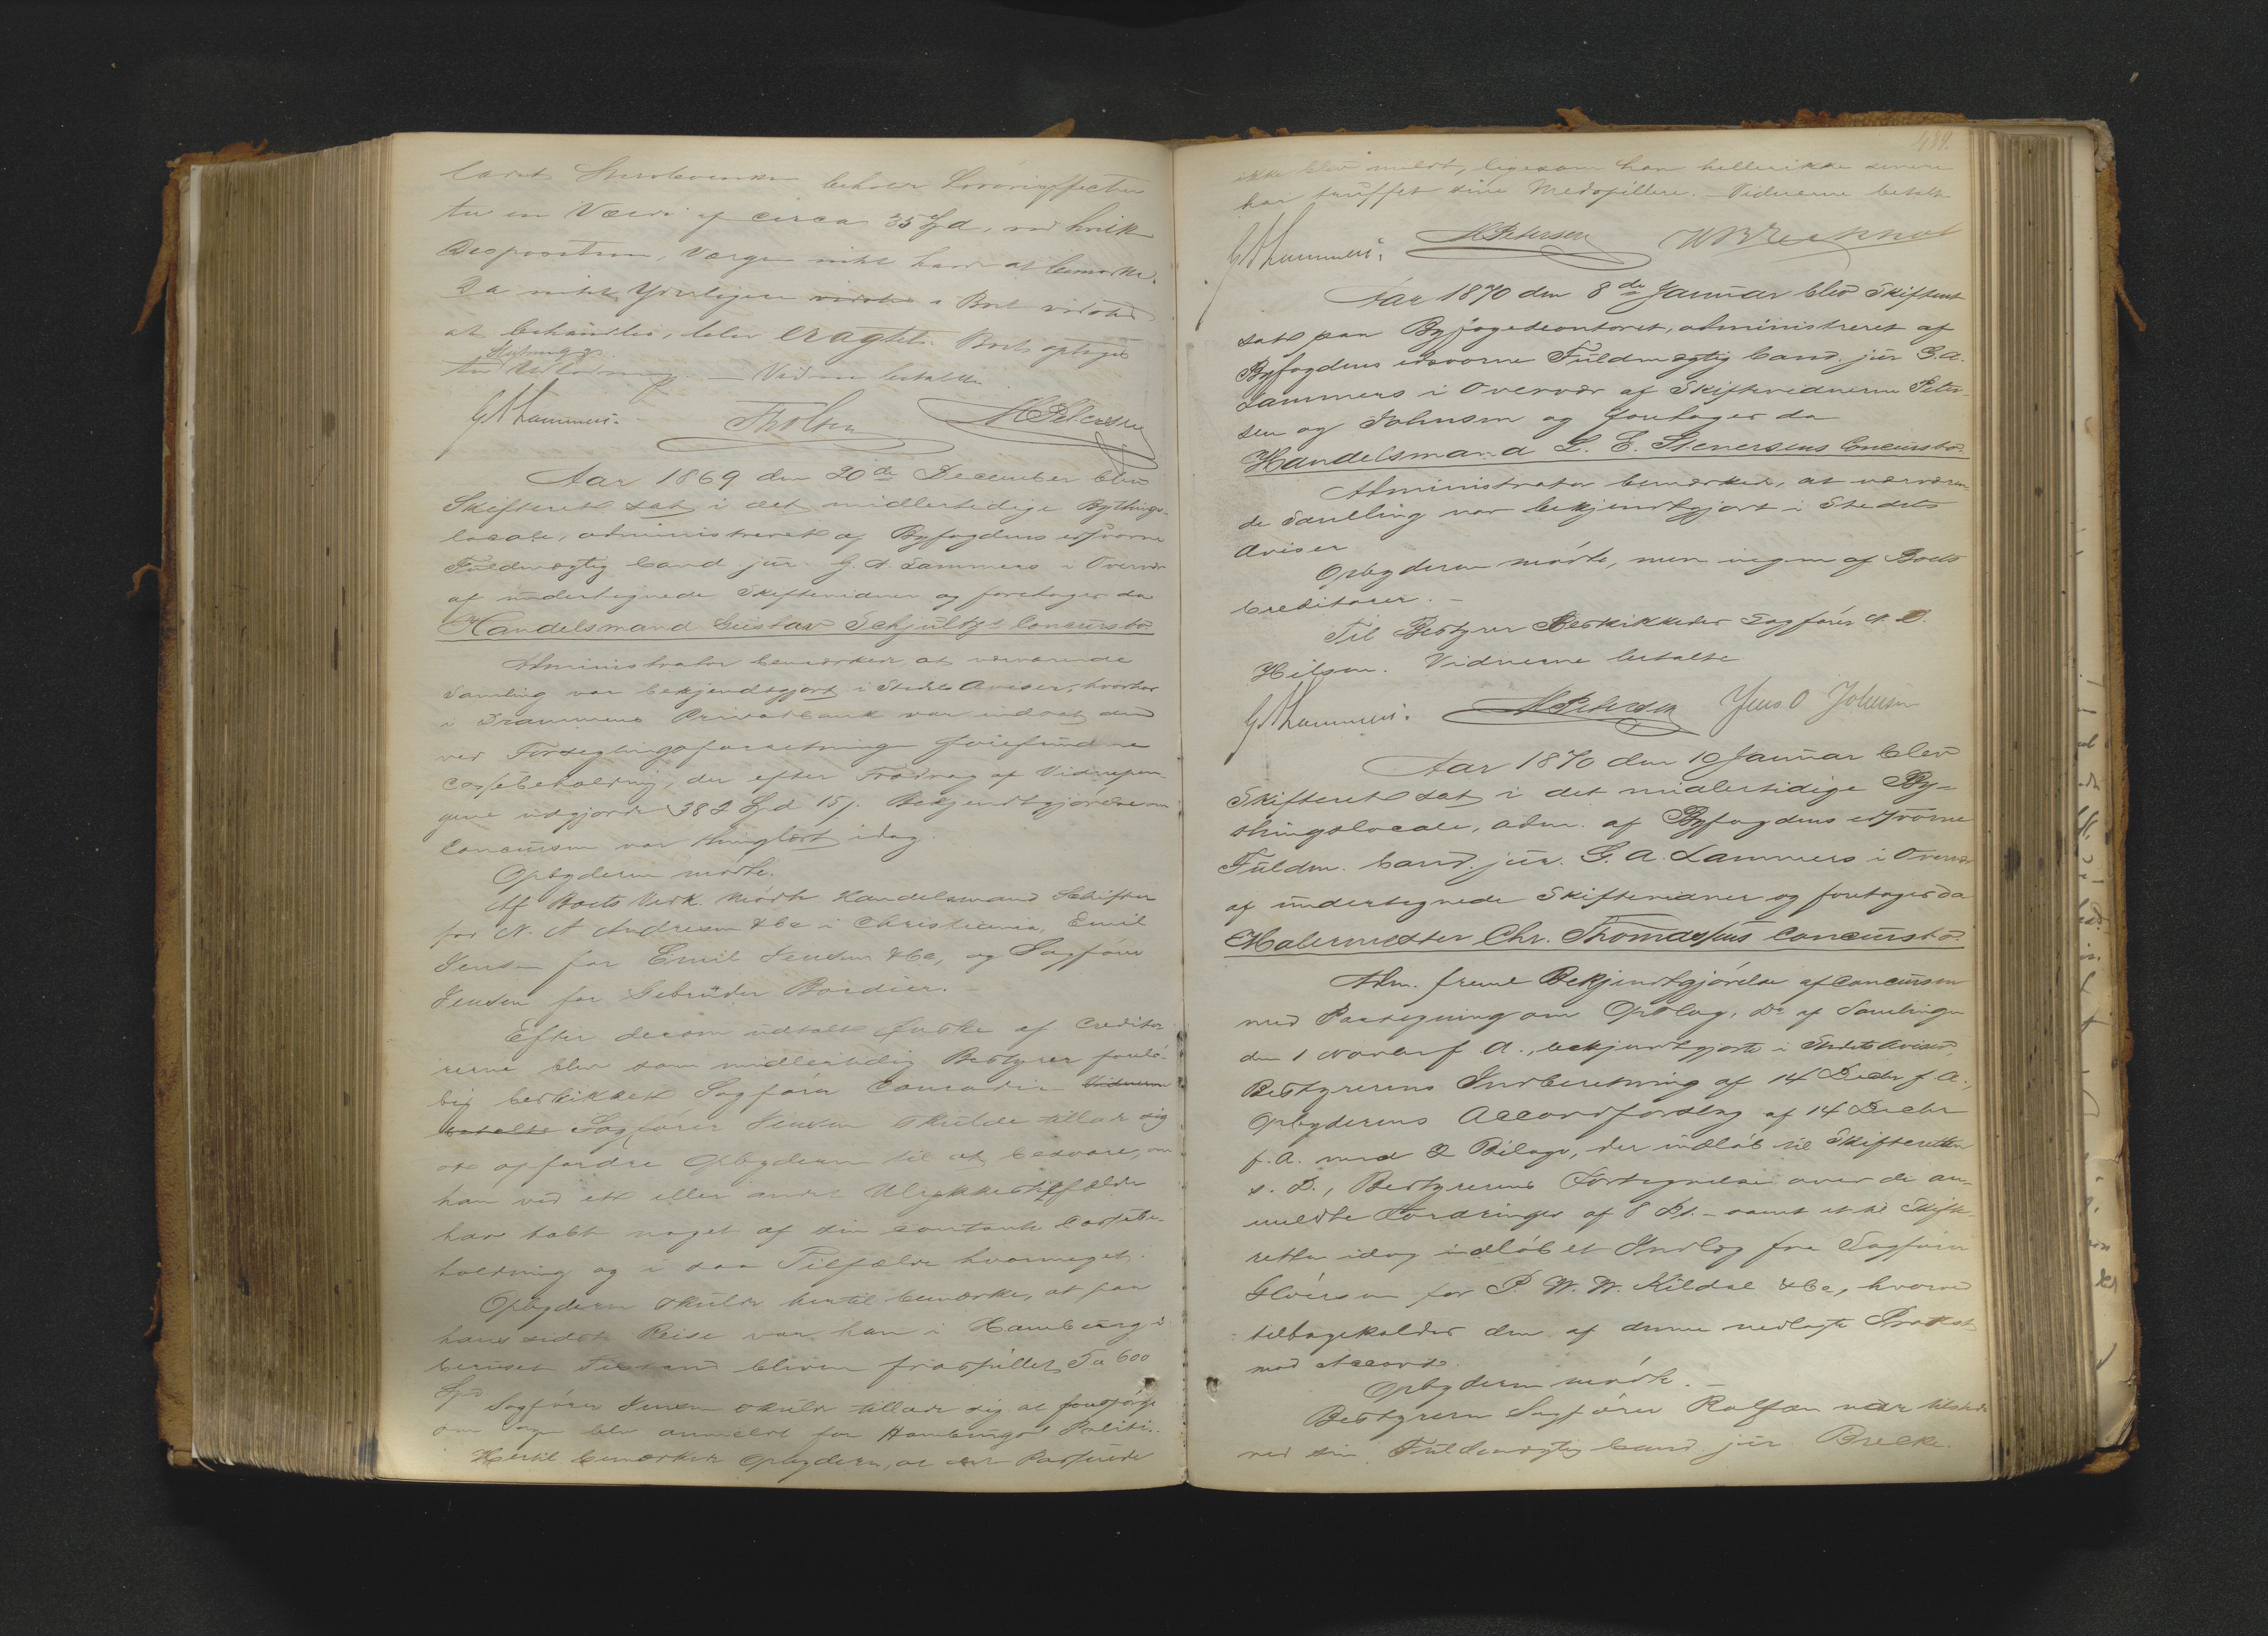 ladet behver Løsøreeffecter
til en Værdi af circa 35 Spd, ved hvilk
Disposition, Værge intet havde at bemærke.
Da intet Yderligere vidste i Boet vidste
at behandles, blev eragtet: Boet optages
Slutnings
til Udlodning. — Vidnerne betalte
G A Lammers. Tholsen M Petersen
Aar 1869 den 20de December blev
Skifteret sat i det midlertidige Bythings-
locale, administreret af Byfogdens edsvorne
Fuldmægtig Cand jur. G. A. Lammers i Overvær
af undertegnede Skiftevidner og foretoges da
Handelsmand Gustav Schjultz's Concursbo.
Administrator bemærkede, at nærværende
Samling var bekjendtgjort i Stedets Aviser, hvorhos
i Drammens Privatbank var indsat den
ved Forseglingsforretningen forefundne
Cassebeholdning, der efter Fradrag af Vidnepen-
gene udgjorde 382 Spd 15 s. Bekjendtgjørelse om
Concursen var thinglæst idag.
Opbyderen mødte.
Af Boets Vedk. mødte Handelsmand Schifter
for N. A Andresen & Co i Christiania, Emil
Jensen for Emil Jensen & Co, og Sagfører
Jensen for Gebrüder Bordier.
Efter derom udtalt Ønske af Creditor
erne blev som midlertidig Bestyrer foreló-
big beskikket Sagfører Conradi. Vidnerne
betalte Sagfører Jensen skulde tillade sig
at opfordre Opbyderen til at besvare, om
han ved et eller andet Ulykkestilfælde
har tabt noget af sin contante Cassebe-
holdning og i saa Tilfælde hvormeget.
Opbyderen skulde hertil bemærke, at paa
hans sidste Reise var han i Hamburg i
beruset Tilstand bleven fraspillet Ca 600
Spd
Sagfører Jensen skulde tillade sig at forespørge
om Sagen blev anmeldt for Hamburgs Politi.
Hertil bemærkede Opbyderen, at det Passerede
489.
ikke blev meldt, ligesom han hellerikke senere
har truffet sine Medspillere. Vidnerne betalt
G A Lammers. M Petersen
Aar 1870 den 8de Januar blev Skifteret
sat paa Byfogedcontoret, administreret af
Byfogdens edsvorne Fuldmægtig Cand. jur G. A.
Lammers i Overvær af Skiftevidnerne Peter-
sen og Johnsen og foretoges da
Handelsmand L. E. Stenersens Concursbo.
Administrator bemærkede, at nærværen-
de Samling var bekjendtgjort i Stedets
Aviser
Opbyderen mødte, men ingen af Boets
Creditorer. —
Til Bestyrer Beskikkedes Sagfører N. E.
Heilsen. Vidnerne betalte
G A Lammers. M Petersen Jens O Johnsen
Aar 1870 den 10 Januar blev
Skifteret sat i det midlertidige By-
thingslocale, adm. af Byfogdens edsvorne
Fuldm. Cand. jur. G. A. Lammers i Overvær
af undertegnede Skiftevidner og foretoges da
Malermester Chr. Thomassens Concursbo.
Adm. freml Bekjendtgjørelse af Concursen
med Paategning om Opslag, Do af Samlingen
den 1 Novbr f A., bekjendtgjorte i Stedets Aviser,
Bestyrerens Indberetning af 14 Decbr f. A.,
Opbyderens Accordforslag af 14 Decbr
f. A. med 2 Bilage, der indløb til Skifteretten
s. D., Bestyrerens Fortegnelse over de an-
meldte Fordringer af 8 Ds. — samt et til Skifte-
retten idag indløbet Indlæg fra Sagfører
for P. W. W. Kildal & Co, hvorved
tilbagekaldes den af denne nedlagte Protest
mod Accord.
Opbyderen mødte. —
Bestyreren Sagfører Rolfsen var tilstede
ved sin Fuldmægtig Cand. jur. Brecke.